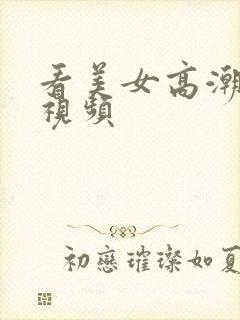 看美女高潮
視頻
初戀璀璨如夏